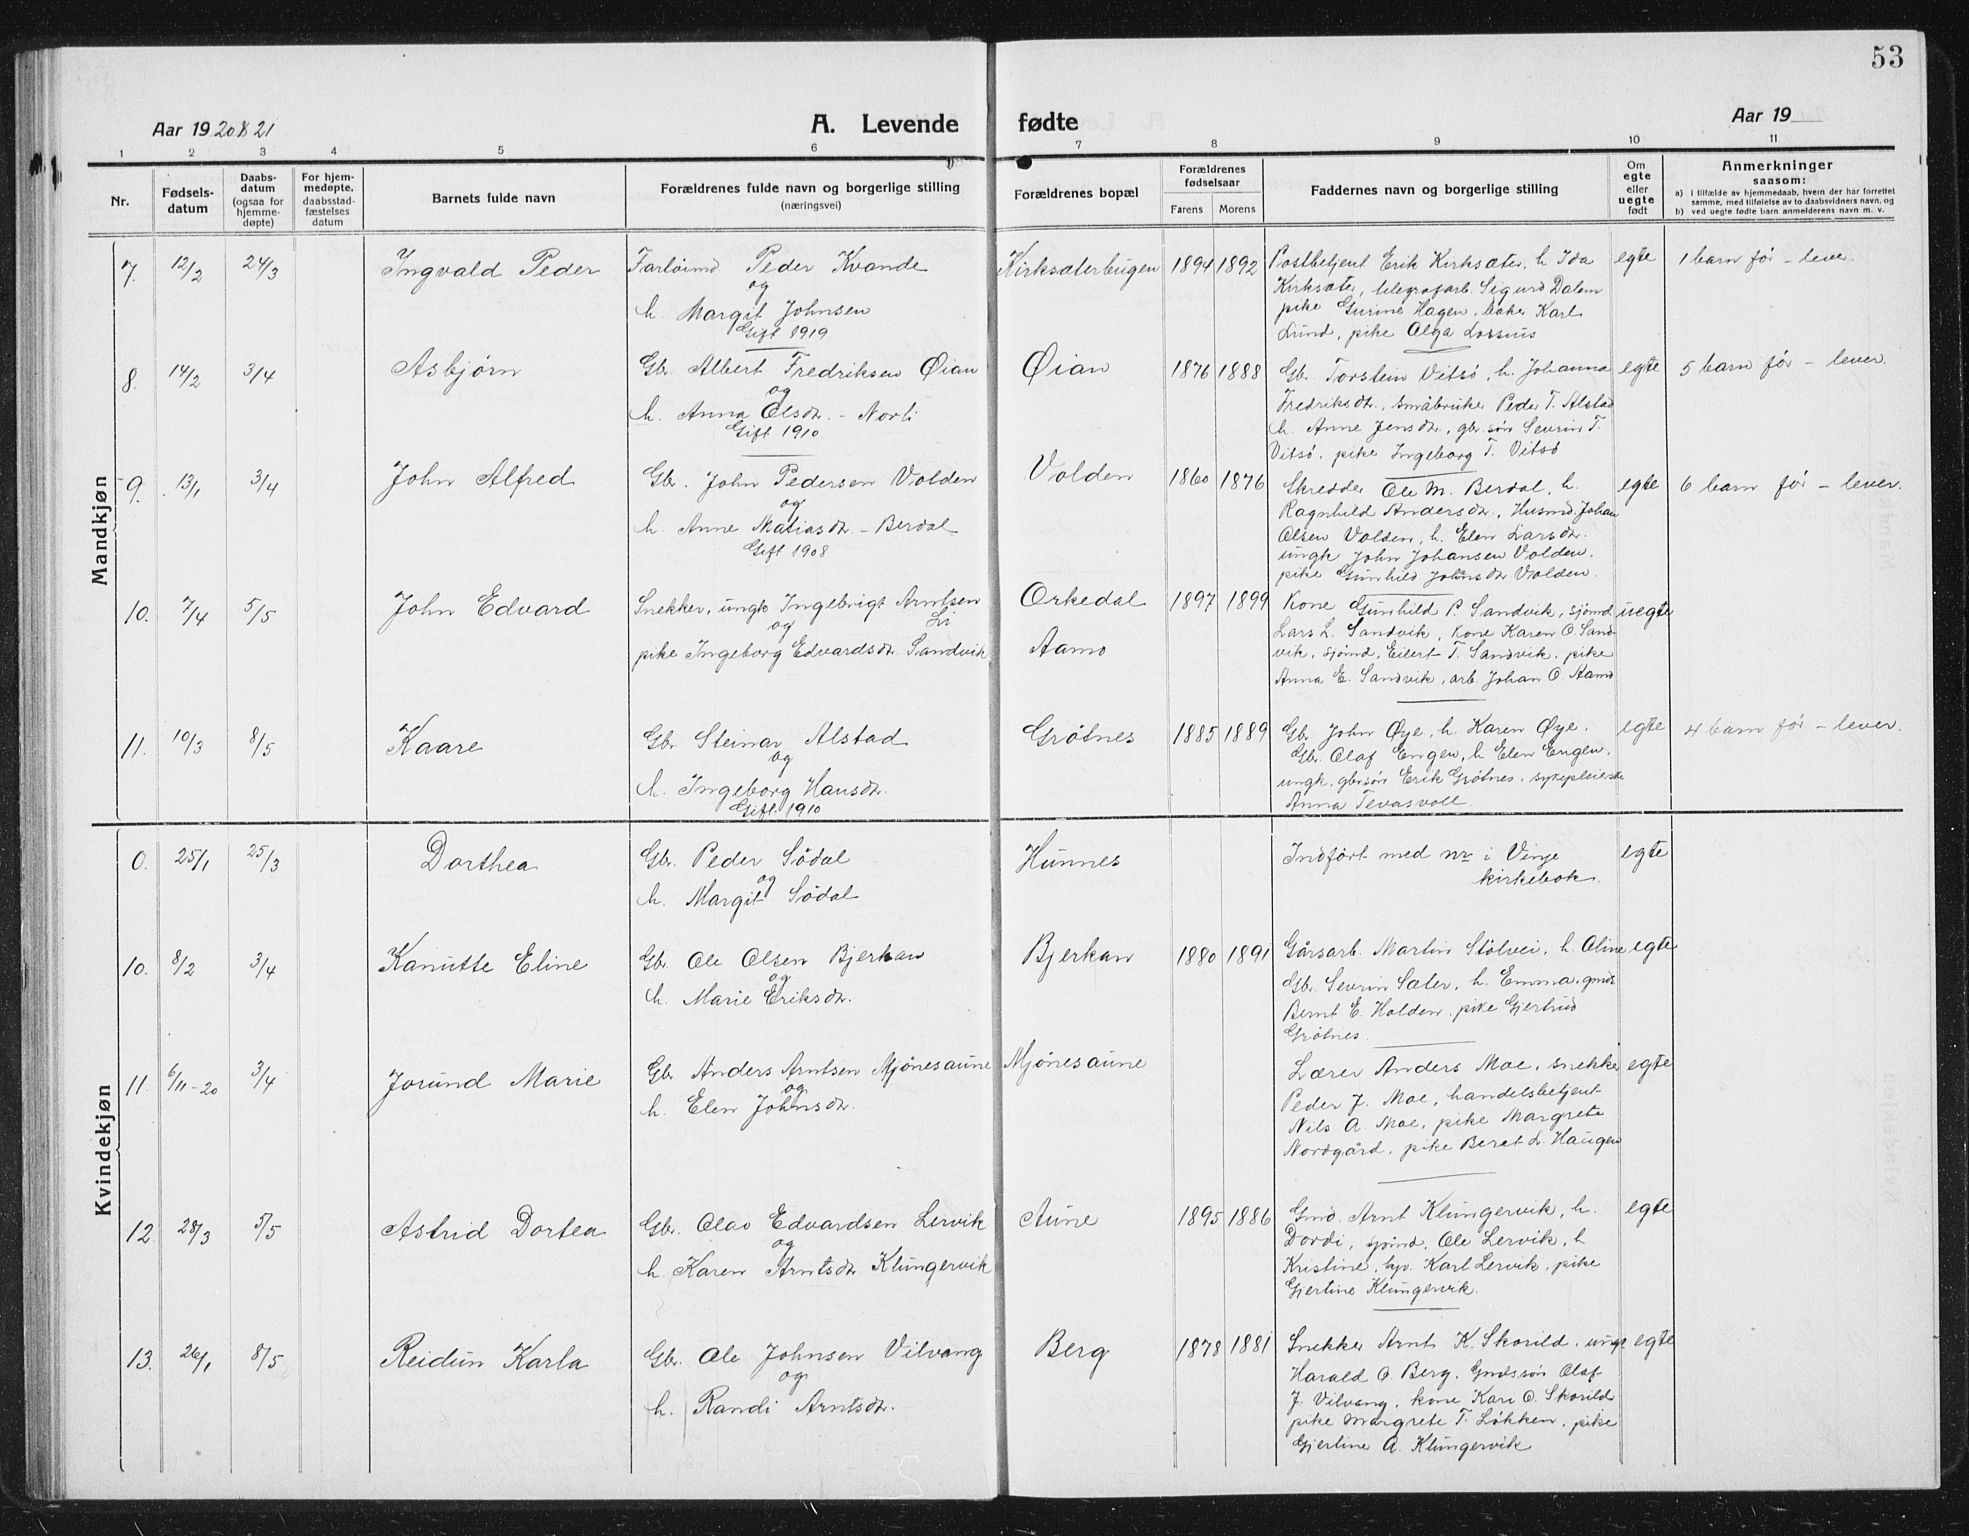 53
Aar 1920 & 21
A. Levende fødte
Aar 19
1 2 3 4 5 6 7 8 9 10 11
Nr.
Fødsels-
datum
Daabs-
datum
(ogsaa for
hjemme-
døpte)
For hjem-
medøpte,
daabsstad-
fæstelses
datum
Barnets fulde navn
Forældrenes fulde navn og borgerlige stilling
(næringsvei)
Forældrenes bopæl
Forældrenes
fødselsaar
Farens Morens
Faddernes navn og borgerlige stilling
Om
egte
eller
uegte
født
Anmerkninger
saasom:
a) i tilfælde av hjemmedaab, hvem der har forrettet
samme, med tilføielse av to daabsvidners navn, og
b) ved uegte fødte barn anmelderens navn m. v.
Mandkjøn
7. 12/2 24/3 Ingvald Peder
Peder Kvande
og
h. Margit Johnsen
Gift 1919
Kirksæterbugen 1894 1892
Postbetjent Erik Kirksæter, h. Ida
Kirksæter, telegrafarb. Sigurd Dalem
pike Gurine Hagen, baker Karl
Lund, pike Olga Lossius
egte 1 barn før - lever.
8. 14/2 3/4 Asbjørn
Gbr. Albert Fredriksen Øian
og
h. Anna Olsdr. - Norli
Gift 1910
Øian 1876 1888
Gb. Torstein Vitsø, h. Johanna
Fredriksdr., småbruker Peder T. Alstad
h. Anne Jensdr., gbr. søn Sevrin T.
Vitsø, pike Ingeborg T. Vitsø
egte 5 barn før - lever.
9. 13/1 3/4 John Alfred
Gbr. John Pedersen Volden
og
h. Anne Matiasdr. - Berdal
Gift 1908
Volden 1860 1876
Skredder Ole M. Berdal, h.
Ragnhild Andersdr., Husmd. Johan
Olsen Volden, h. Elen Larsdr.
ungk John Johansen Volden.
pike Gunhild Johnsdr Volden.
egte 6 barn før - lever.
10. 7/4 5/5 John Edvard
Snekker, ungk Ingebrigt Arntsen
Li
og
pike Ingeborg Edvardsdr. Sandvik
Orkedal
Aamo
1897 1899
Kone Gunhild P. Sandvik, sjømd
Lars L. Sandvik, kone Karen O. Sand-
vik, sjømd, Eilert T. Sandvik, pike
Anna E. Sandvik, arb. Johan O. Aamo
uegte
11. 10/3 8/5 Kaare
Gbr Steinar Alstad
og
h. Ingeborg Hansdr.
Gift 1910
Grøtnes 1885 1889
Gb. John Øye, h. Karen Øye.
Gbr. Olaf Engen, h Elen Engen,
ungk. gbrsøn Erik Grøtnes, sykepleierske
Anna Tevasvoll
egte 4 barn før - lever.
Kvindekjøn
0. 25/1 25/3 Dorthea
Gbr. Peder Sødal
og
h. Margit Sødal
Hunnes
Indført med nr i Vinje
kirkebok.
egte
10. 8/2 3/4 Kanutte Eline
Gb. Ole Olsen Bjerkan
og
h. Marie Eriksdr.
Bjerkan 1880 1891
Gårsarb. Martin Stølvei, h. Oline
Gbr. Sevrin Sæter, h. Emma, gmds
Bernt E. Holden, pike Gjertrud
Grøtnes.
egte
11. 6/11-20 3/4 Jorund Marie
Gbr. Anders Arntsen Mjønesaune
og
h. Elen Johnsdr.
Mjønesaune
Lærer Anders Moe, snekker
Peder J. Moe, handelsbetjent
Nils A. Moe, pike Margrete
Nordgård, pike Beret L. Haugen
egte
12. 28/3 5/5 Astrid Dortea
Gbr. Olav Edvardsen Lervik
og
h. Karen Arntsdr Klungervik
Aune 1895 1886
Gmd. Arnt Klungervik, h.
Dordi, sjømd. Ole Lervik, h
Kristine, Karl Lervik, pike
Gjertine Klungervik.
egte
13. 26/1 8/5 Reidun Karla
Gbr. Ole Johnsen Vilvang
og
h. Randi Arntsdr.
Berg 1878 1881
Snekker Arnt K. Skorild, ungk
Harald O Berg, Gmdssøn Olaf
J. Vilvang, kone Kari O. Skorild
pike Margrete T. Løkken, pike
Gjertine A. Klungervik
egte